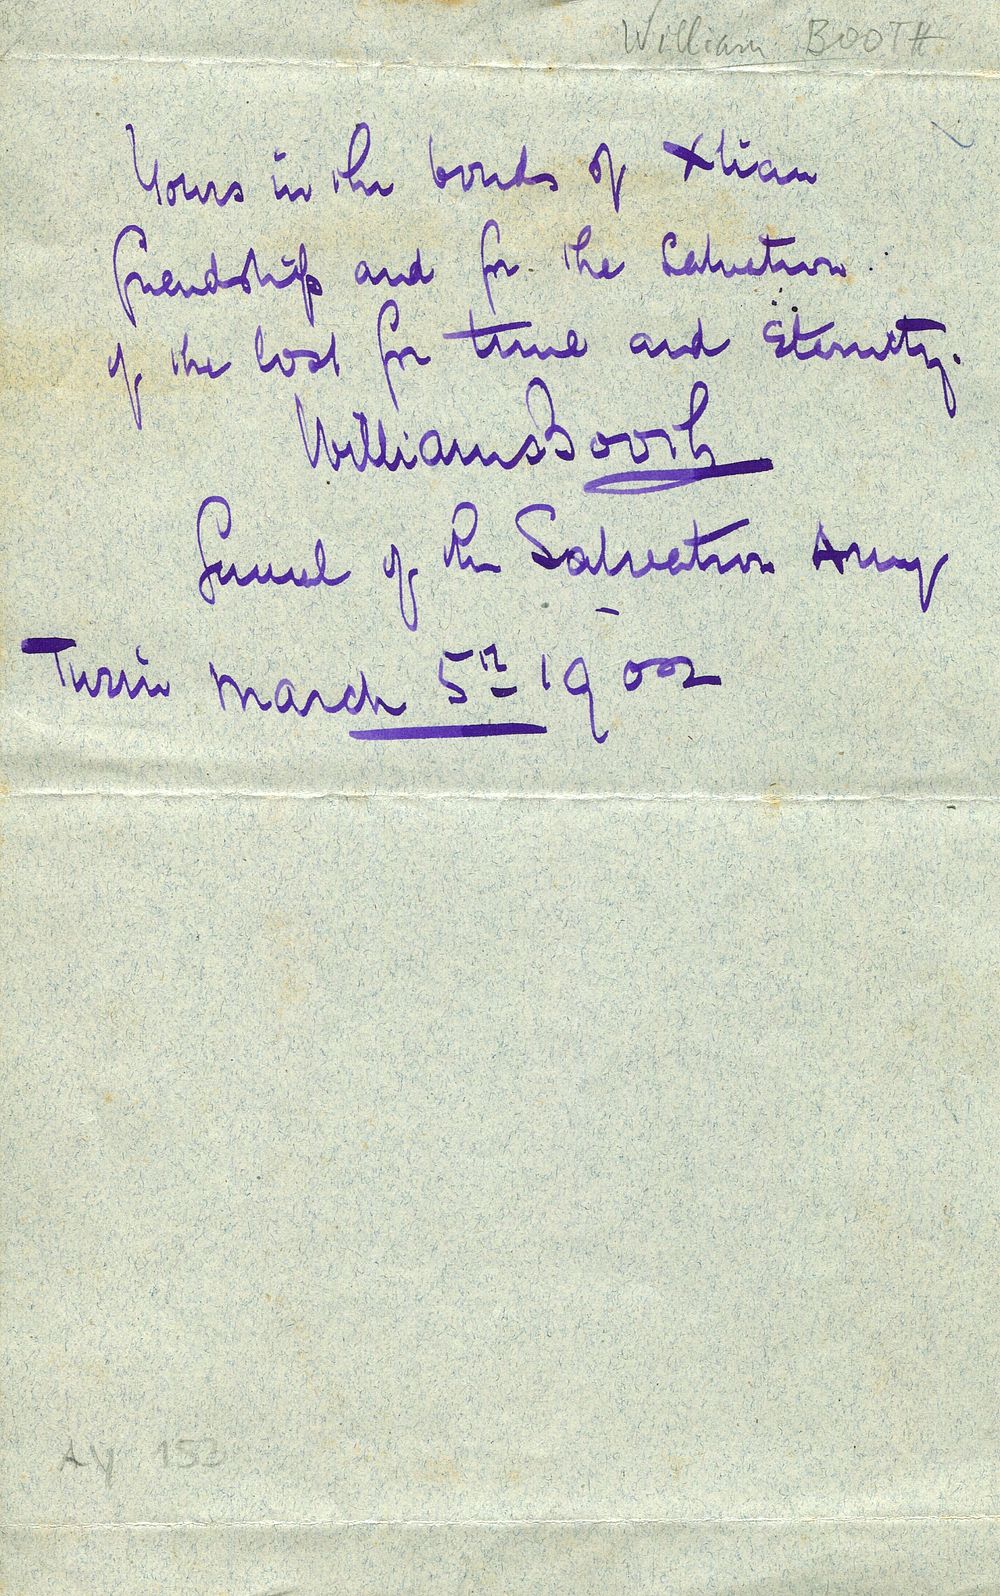 William BOOTH
Yours in the bonds of Xtian
friendship and for the Salvation
of the lost for time and Eternity.
William Booth
General of the Salvation Army
Turin March 5th 1902
AY 153